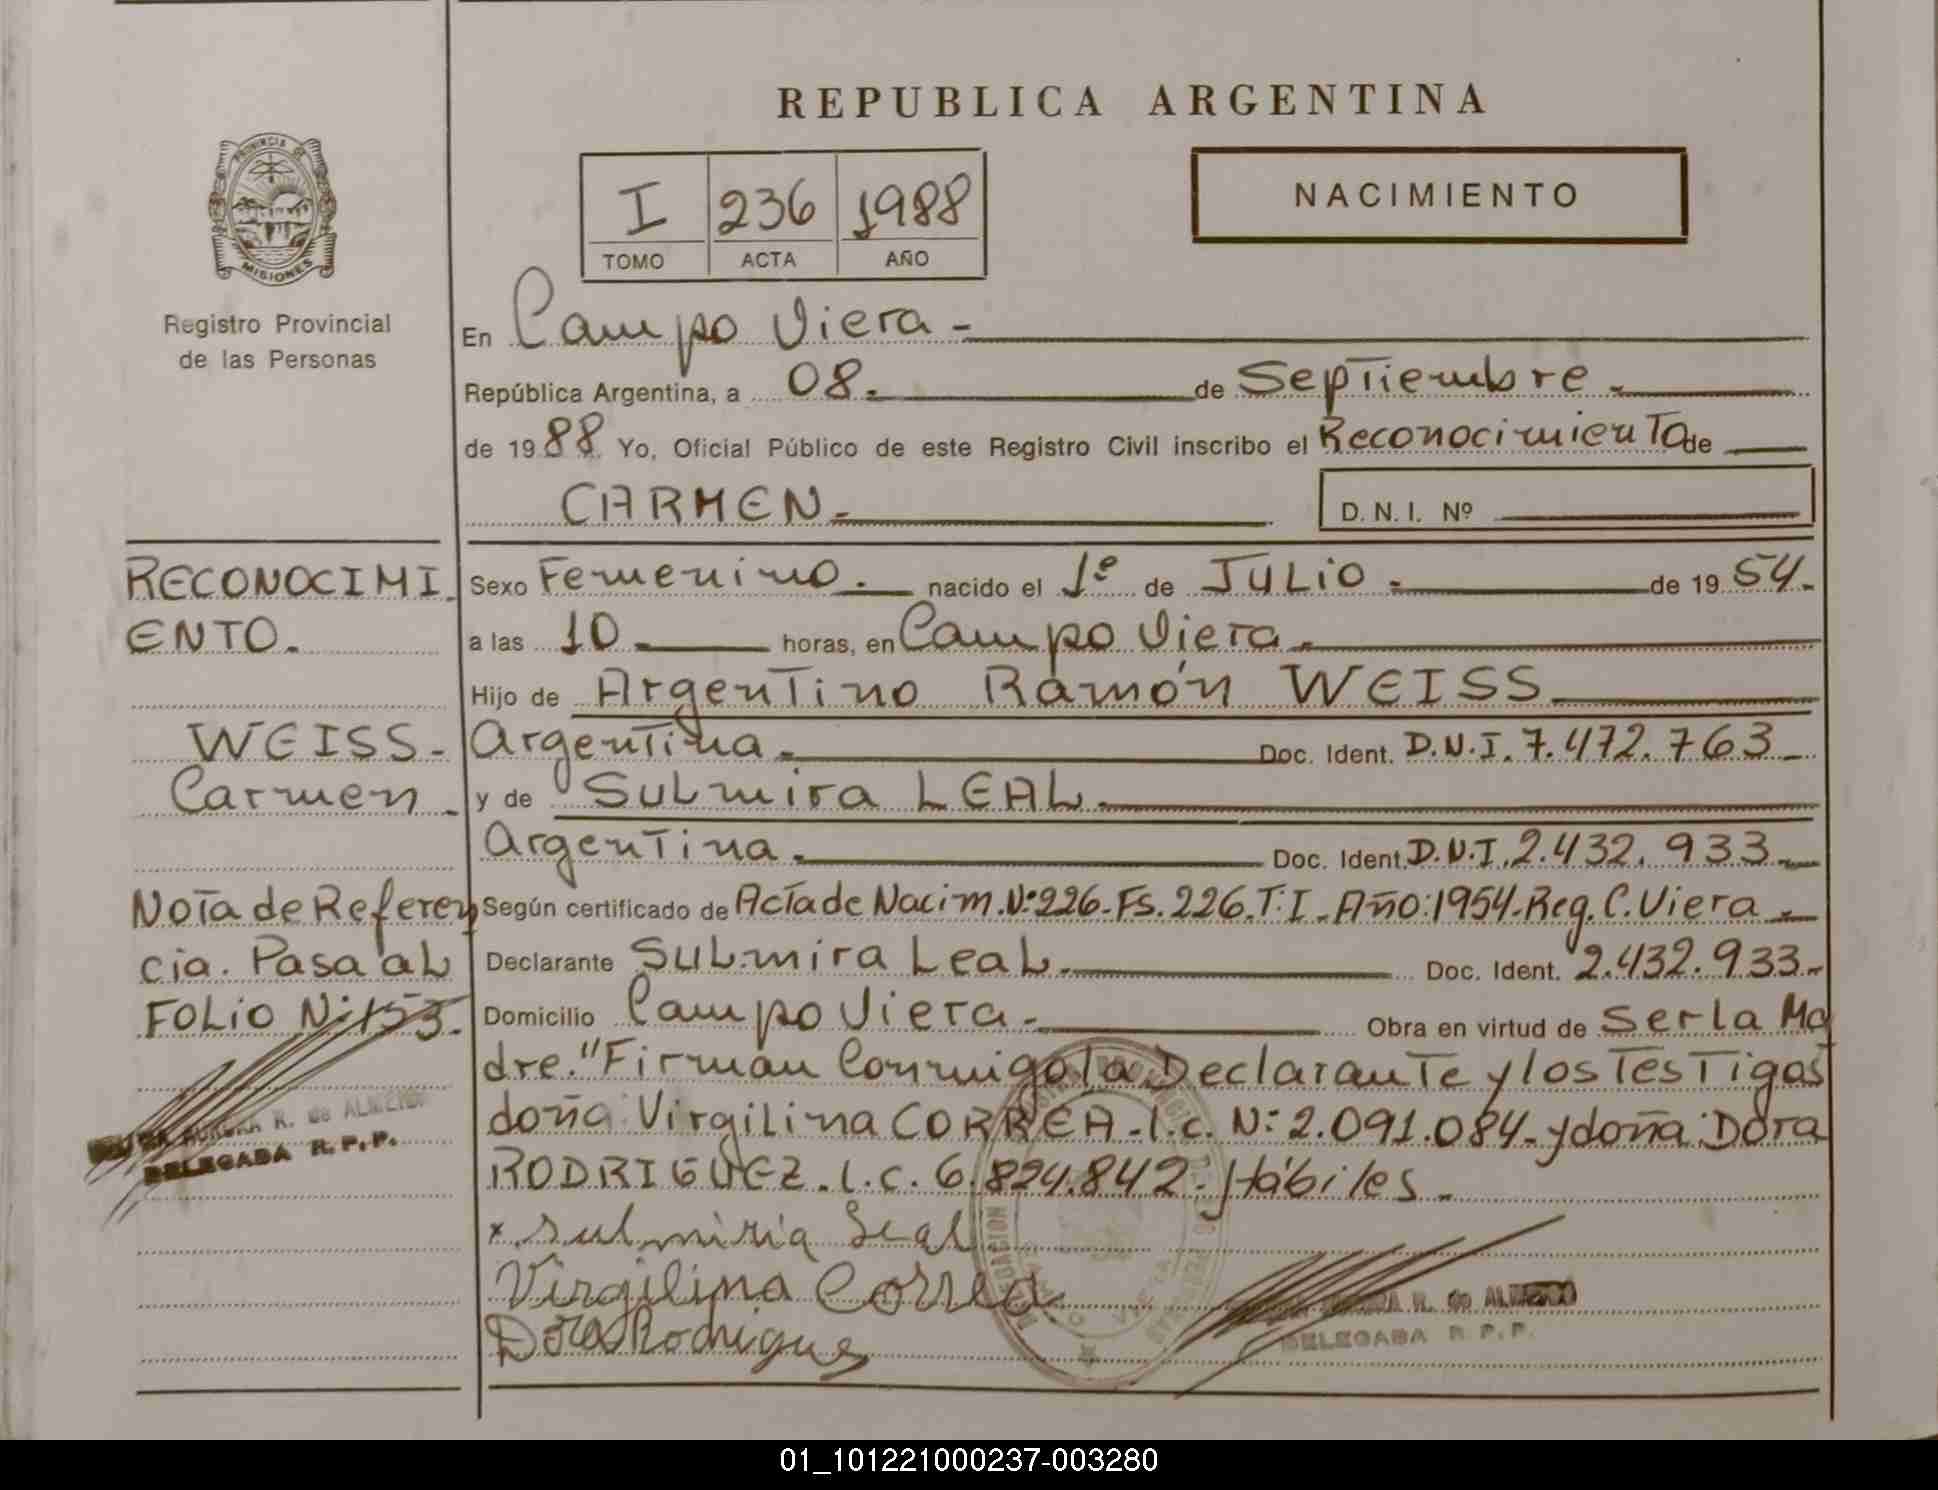 REPUBLICA ARGENTINA
PROVINCIA DE
MISIONES
Registro Provincial
de las Personas
I 236 1988
TOMO ACTA AÑO
NACIMIENTO
En Campo Viera -
República Argentina, a 08. de Septiembre.
de 1988. Yo, Oficial Público de este Registro Civil inscribo el Reconocimiento de
CARMEN.
D. N. I. Nº
RECONOCIMI
ENTO.
WEISS-
Carmen.
Nota de Referen
cia. Pasa al
FOLIO Nº 153.
R. de ALMEIDA
DELEGADA R. P. P.
Sexo Femenino. nacido el 1º de JULIO. de 1954.
a las 10. horas, en Campo Viera.
Hijo de Argentino Ramón WEISS
Argentina. Doc. Ident. D.N.I. 7.472.763
y de Sulmira LEAL.
Argentina. Doc. Ident. D.N.I. 2.432.933
Según certificado de Acta de Nacim. Nº 226-Fs. 226. T: I. Año: 1954-Reg. C. Viera.
Declarante Sulmira Leal. Doc. Ident. 2.432.933-
Domicilio Campo Viera. Obra en virtud de Ser la Ma
dre." Firman Conmigo la Declarante y los Testigos
doña Virgilina CORREA-l.c. Nº 2.091.084-y doña Dora
RODRIGUEZ. l.c. 6.824.842. Hábiles.
x sulmiria Leal
Virgilina Correa
Dora Rodrigues
R. de ALMEIDA
DELEGADA R. P. P.
01_101221000237-003280